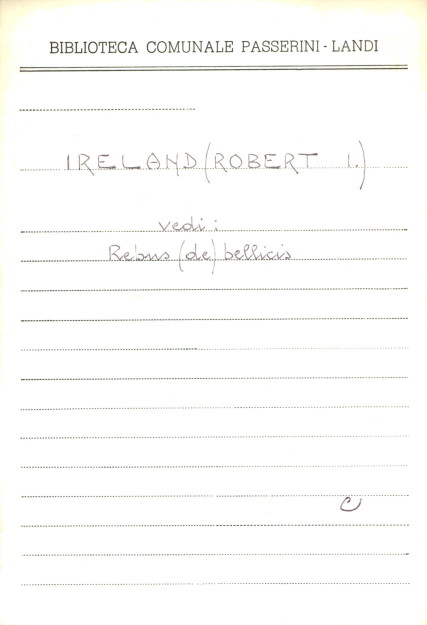 BIBLIOTECA COMUNALE PASSERINI - LANDI
IRELAND (ROBERT I.)
vedi:
Rebus (de) bellicis
C